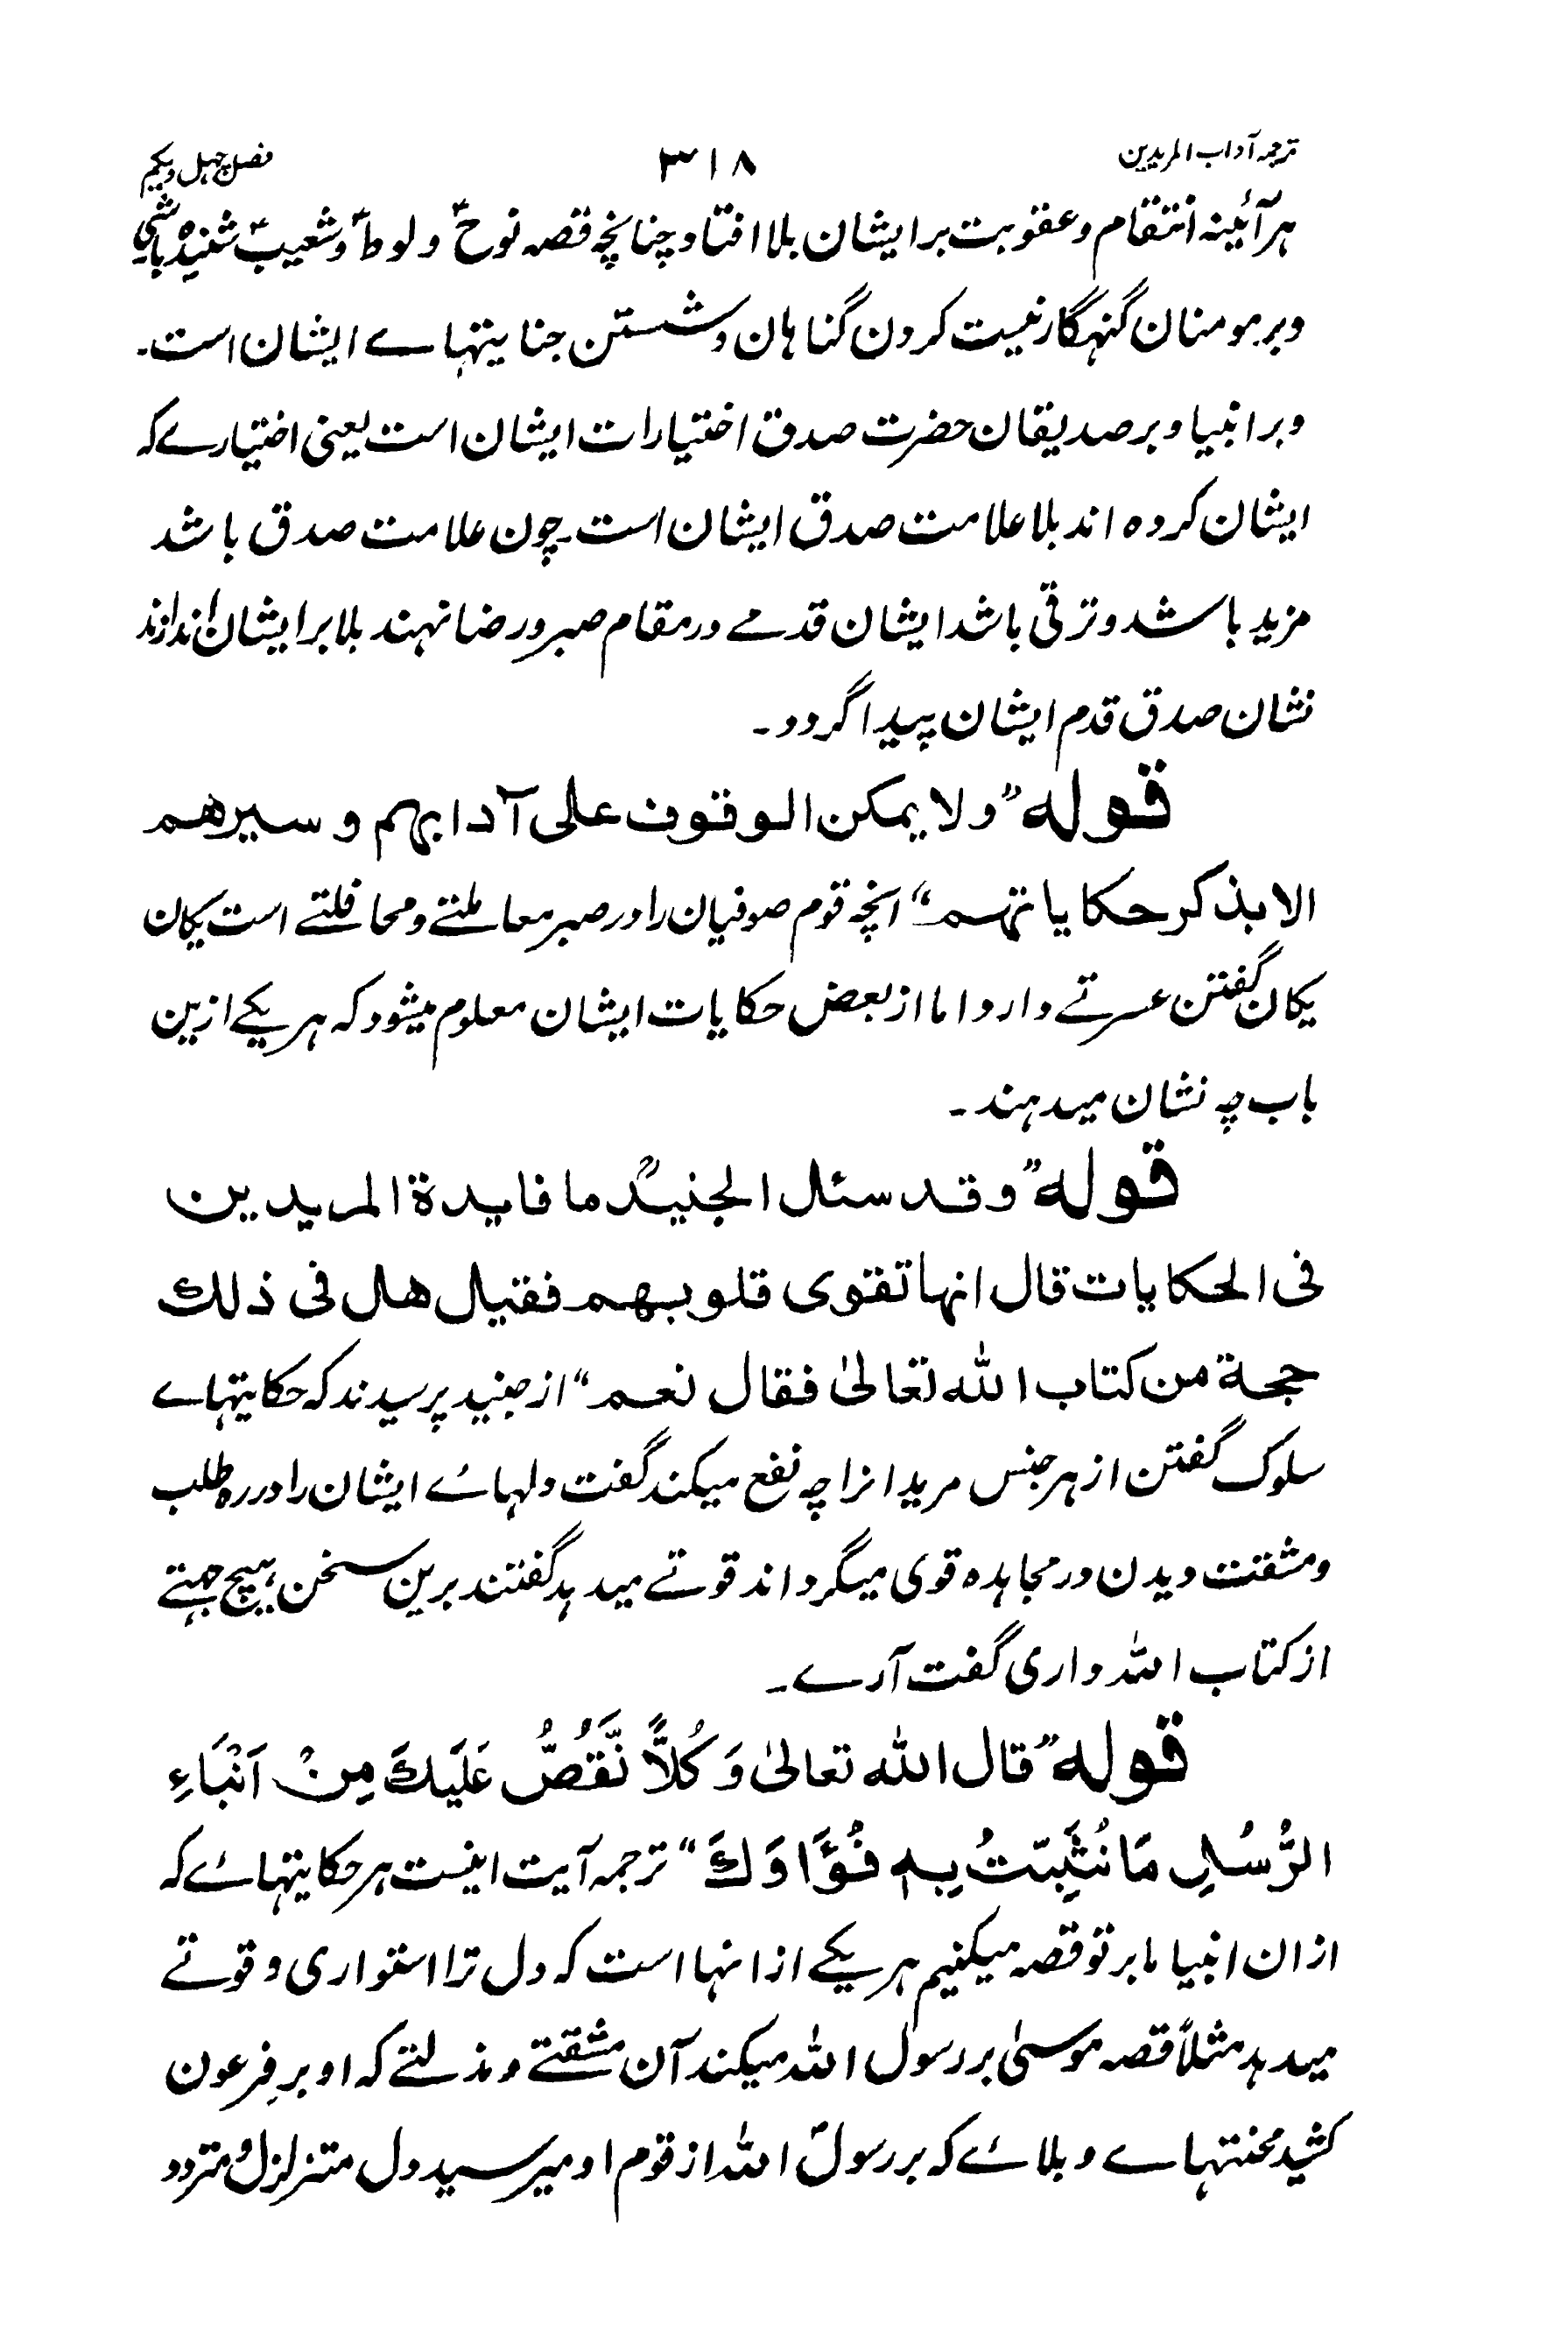 ترجمہ آداب المریدین
۳۱۸
فصل چہل ویکم
ہرآئینہ انتقام و عقوبت بر ایشان بلا افتاد چنانچہ قصہ نوحؑ و لوطؑ و شعیبؑ شنیدہ باشی
و بر مومنان گنہگار نیست کردن گناہان و شستن جنایتہاے ایشان است۔
و بر انبیا و بر صدیقان حضرت صدق اختیارات ایشان است یعنی اختیارے کہ
ایشان کردہ اند بلا علامت صدق ایشان است۔ چون علامت صدق باشد
مزید باشد و ترقی باشد ایشان قدمے در مقام صبر و رضا نہند بلا بر ایشان اندازند
نشان صدق قدم ایشان پیدا گردد۔
قوله ”ولا یمکن الوقوف علی آدابہم و سیرهم
الا بذکر حکایاتہم“ انچہ قوم صوفیان را در صبر معاملتے و محافلتے است یکان
یکان گفتن عسرتے دارد اما از بعض حکایات ایشان معلوم میشود کہ ہر یکے ازین
باب چہ نشان میدہند۔
قوله ”وقد سئل الجنیدؒ ما فایدة المریدین
فی الحکایات قال انہا تقوی قلوبہم فقیل هل فی ذلك
حجة من کتاب الله تعالیٰ فقال نعم“ از جنید پرسیدند کہ حکایتہاے
سلوک گفتن از ہر جنس مریدانرا چہ نفع میکند گفت دلہائے ایشان را در رہ طلب
و مشقت دیدن در مجاہدہ قوی میگرداند قوتے میدہد گفتند برین سخن ہیچ حجتے
از کتاب اللہ داری گفت آرے۔
قوله ”قال الله تعالیٰ وَ كُلاًّ نَّقُصُّ عَلَيْكَ مِنْ اَنْبَاءِ
الرُّسُلِ مَا نُثَبِّتُ بِهٖ فُؤَادَكَ“ ترجمہ آیت اینست ہر حکایتہائے کہ
از ان انبیا ما بر تو قصہ میکنیم ہر یکے از انہا است کہ دل ترا استواری و قوتے
میدہد مثلاً قصہ موسیٰ بر رسول اللہ میکند آن مشقتے و مذلتے کہ او بر فرعون
کشید محنتہاے و بلائے کہ بر رسولؐ اللہ از قوم او میرسید دل متزلزل و متردد